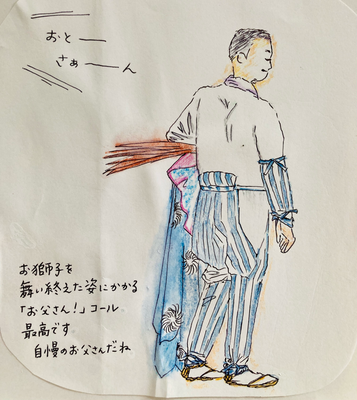 おとー
さぁーん
お獅子を
舞い終えた姿にかかる
「お父さん！」コール
最高です
自慢のお父さんだね